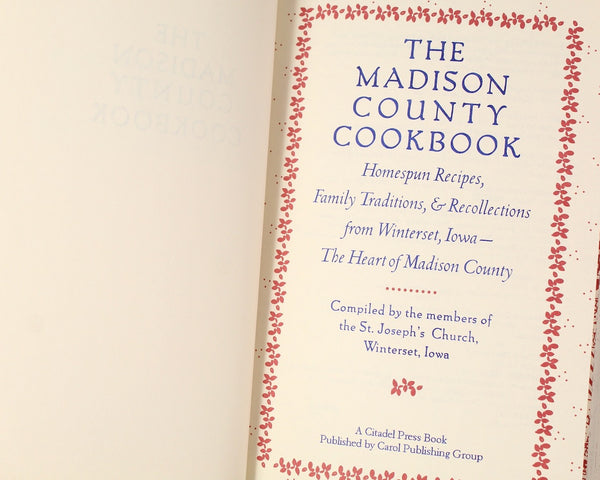 THE
MADISON
COUNTY
COOKBOOK
Homespun Recipes,
Family Traditions, & Recollections
from Winterset, Iowa—
The Heart of Madison County
Compiled by the members of
the St. Joseph's Church,
Winterset, Iowa
A Citadel Press Book
Published by Carol Publishing Group